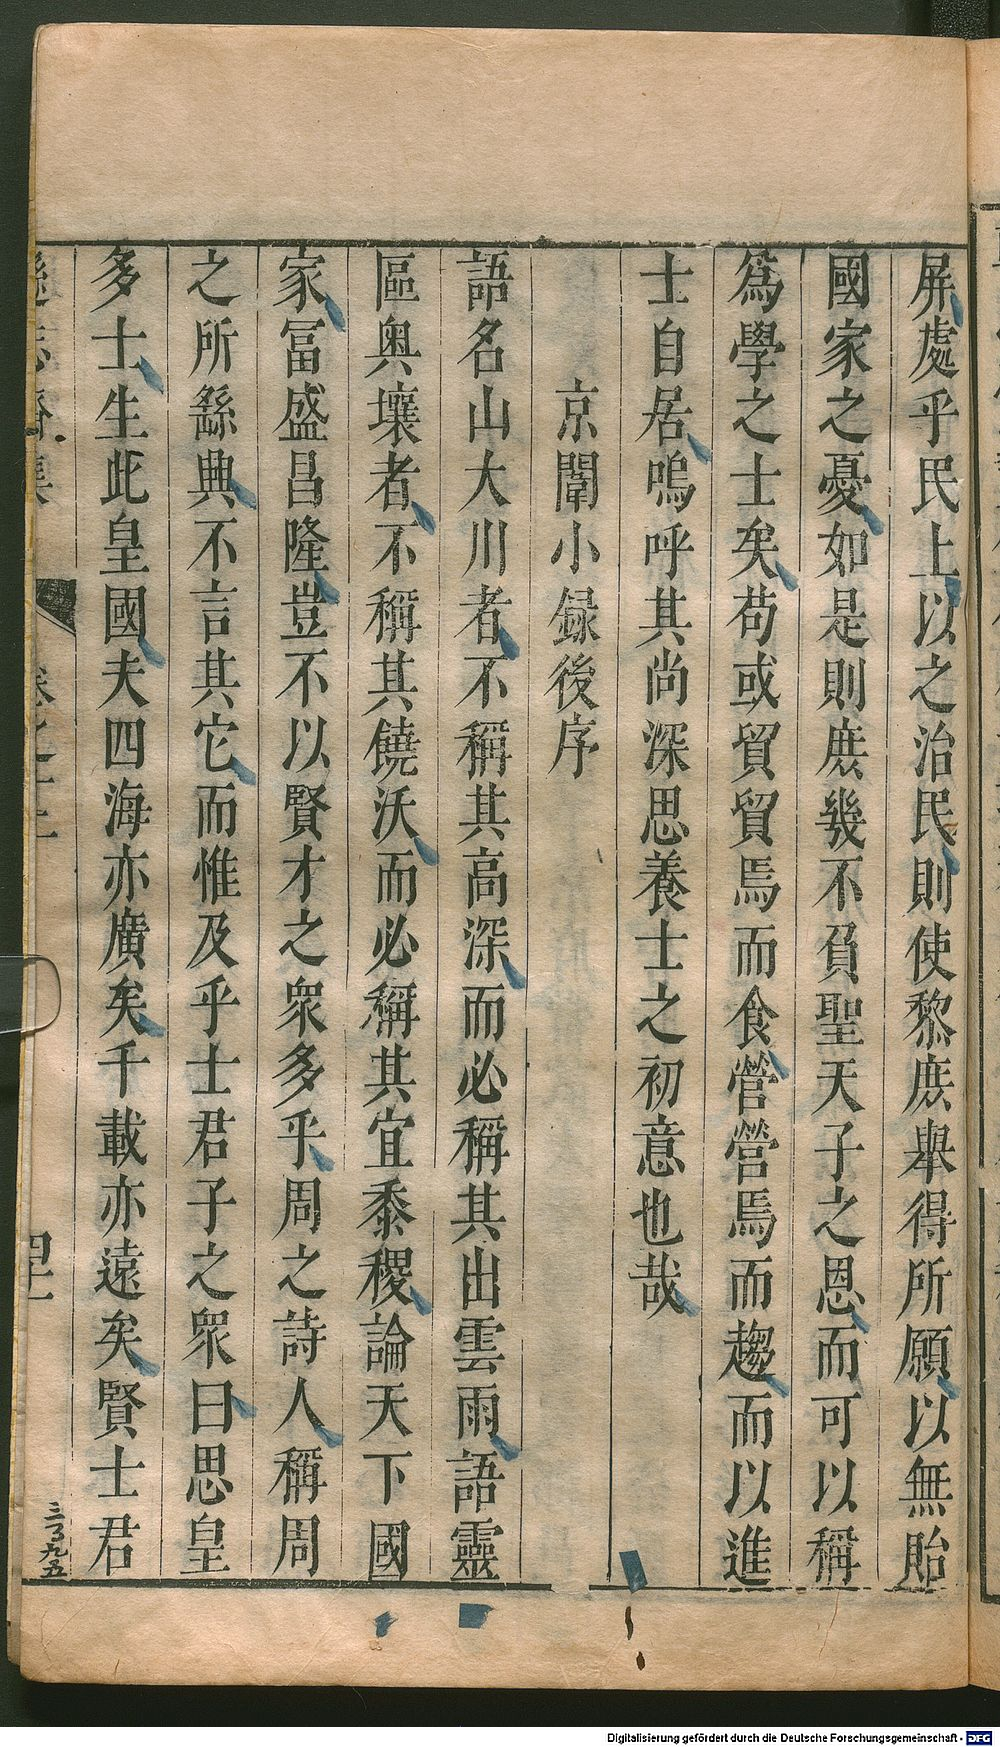 屏處乎民上以之治民則使黎庶舉得所願以無貽
國家之憂如是則庶幾不負聖天子之恩而可以稱
爲學之士矣苟或貿貿焉而食營營焉而趨而以進
士自居嗚呼其尚深思養士之初意也哉
京闈小録後序
語名山大川者不稱其高深而必稱其出雲雨語靈
區奥壤者不稱其饒沃而必稱其宜黍稷論天下國
家冨盛昌隆豈不以賢才之衆多乎周之詩人稱周
之所繇興不言其它而惟及乎士君子之衆曰思皇
多士生此皇國夫四海亦廣矣千載亦遠矣賢士君
三百九五
Digitalisierung gefördert durch die Deutsche Forschungsgemeinschaft - DFG